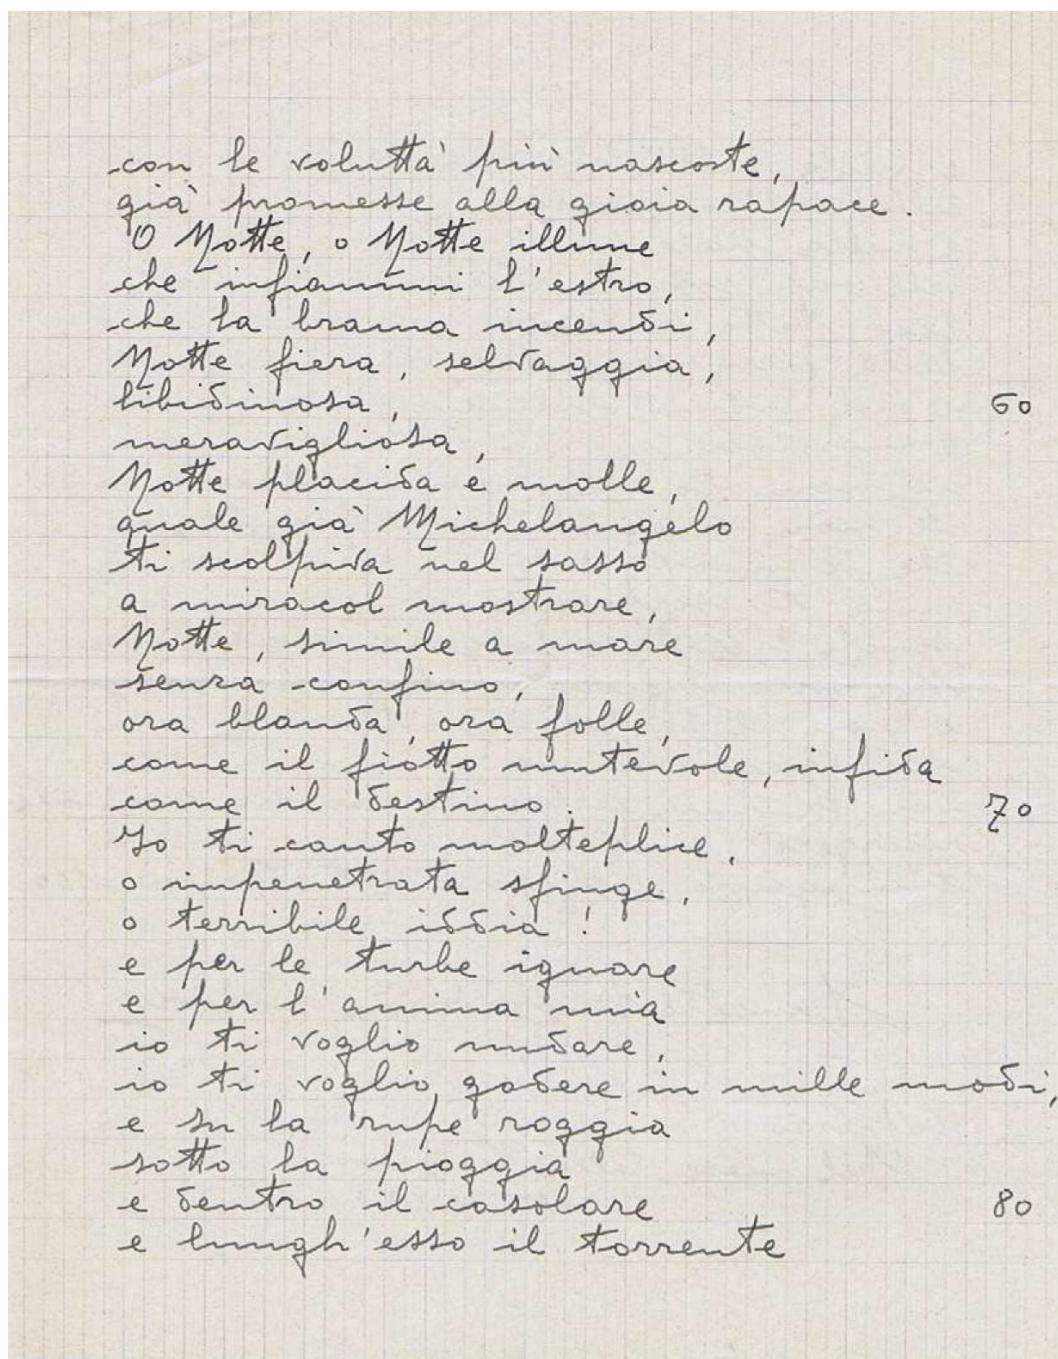 con le voluttà più nascoste,
già promesse alla gioia rapace.
O Notte, o Notte illune
che infiammi l'estro,
che la brama incendi,
Notte fiera, selvaggia,
libidinosa, 60
meravigliosa,
Notte placida e molle,
quale già Michelangelo
ti scolpiva nel sasso
a miracol mostrare,
Notte, simile a mare
senza confino,
ora blanda, ora folle,
come il fiotto mutevole, infida
come il destino. 70
Io ti canto molteplice,
o impenetrata sfinge,
o terribile iddia!
e per le turbe ignare
e per l'anima mia
io ti voglio nudare,
io ti voglio godere in mille modi,
e su la rupe roggia
sotto la pioggia
e dentro il casolare 80
e lungh'esso il torrente